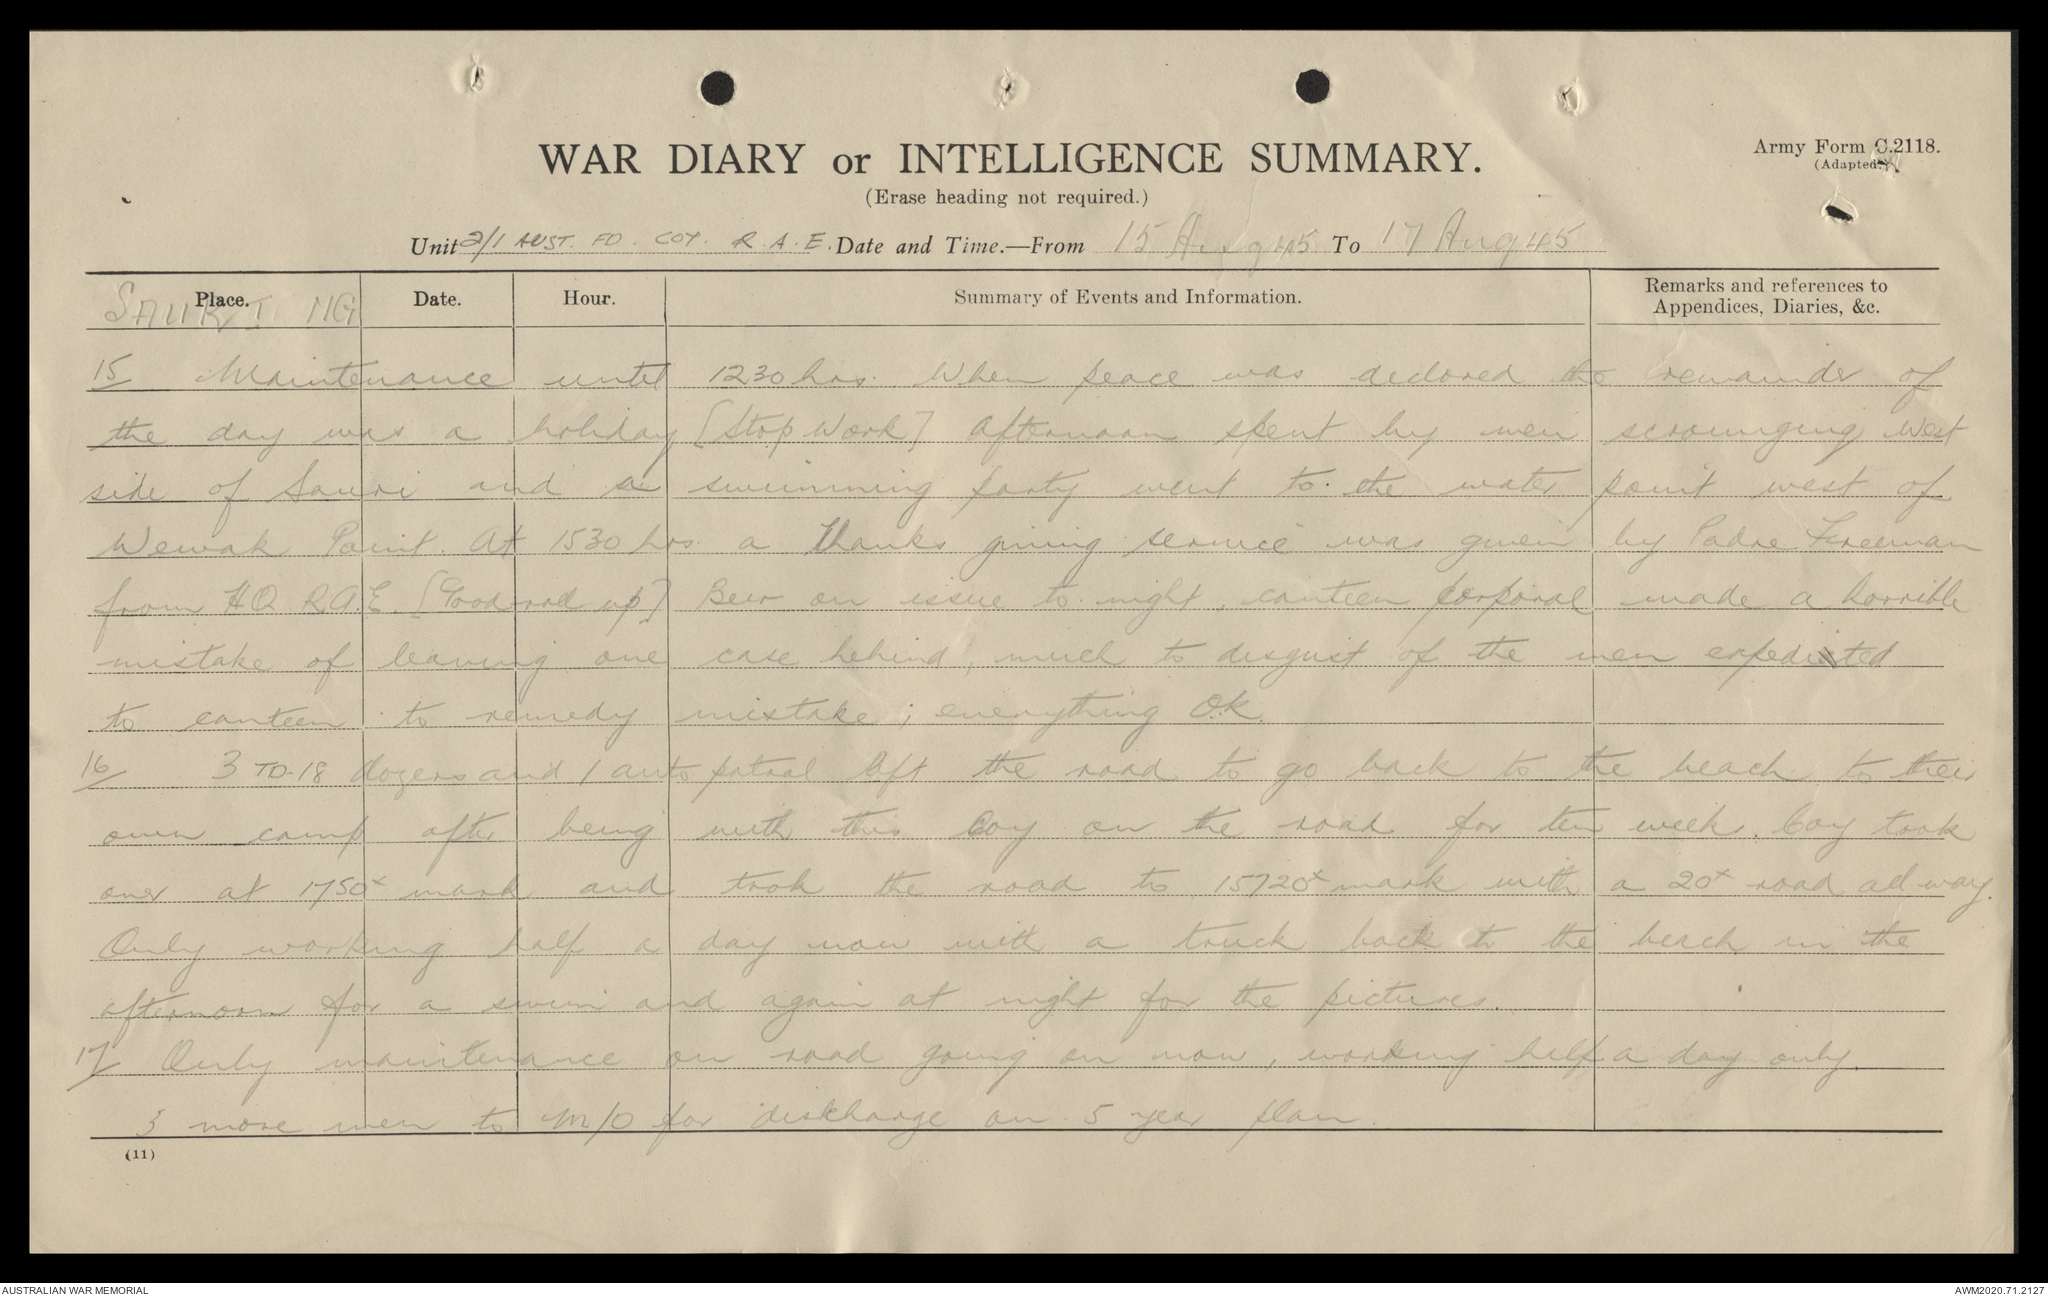 WAR DIARY or INTELLIGENCE SUMMARY.
Army Form C.2118.
(Adapted.)
(Erase heading not required.)
Unit 2/1 AUST. FD. COY. R.A.E. Date and Time.—From 15 Aug 45 To 17 Aug 45
Place. Date. Hour. Summary of Events and Information. Remarks and references to Appendices, Diaries, &c.
SAURI NG
15/ Maintenance until 1230 hrs. When peace was declared the remainder of
the day was a holiday [Stop Work] Afternoon spent by men scrounging West
side of Sauri and a swimming party went to the water point west of
Wewak Point. At 1530 hrs a thanks giving service was given by Padre Freeman
from HQ R.A.E. [Good rod up] Beer on issue to night, canteen corporal made a horrible
mistake of leaving one case behind, much to disgust of the men expedited
to canteen to remedy mistake; everything O.K.
16/ 3 TD-18 dozers and 1 auto patrol left the road to go back to the beach to their
own camp after being with this Coy on the road for ten week. Coy took
over at 1750x mark and took the road to 15720x mark with a 20x road all way.
Only working half a day now with a truck back to the beach in the
afternoon for a swim and again at night for the pictures.
17/ Only maintenance on road going on now, working half a day only.
3 more men to M/O for discharge on 5 year plan
(11)
AUSTRALIAN WAR MEMORIAL
AWM2020.71.2127